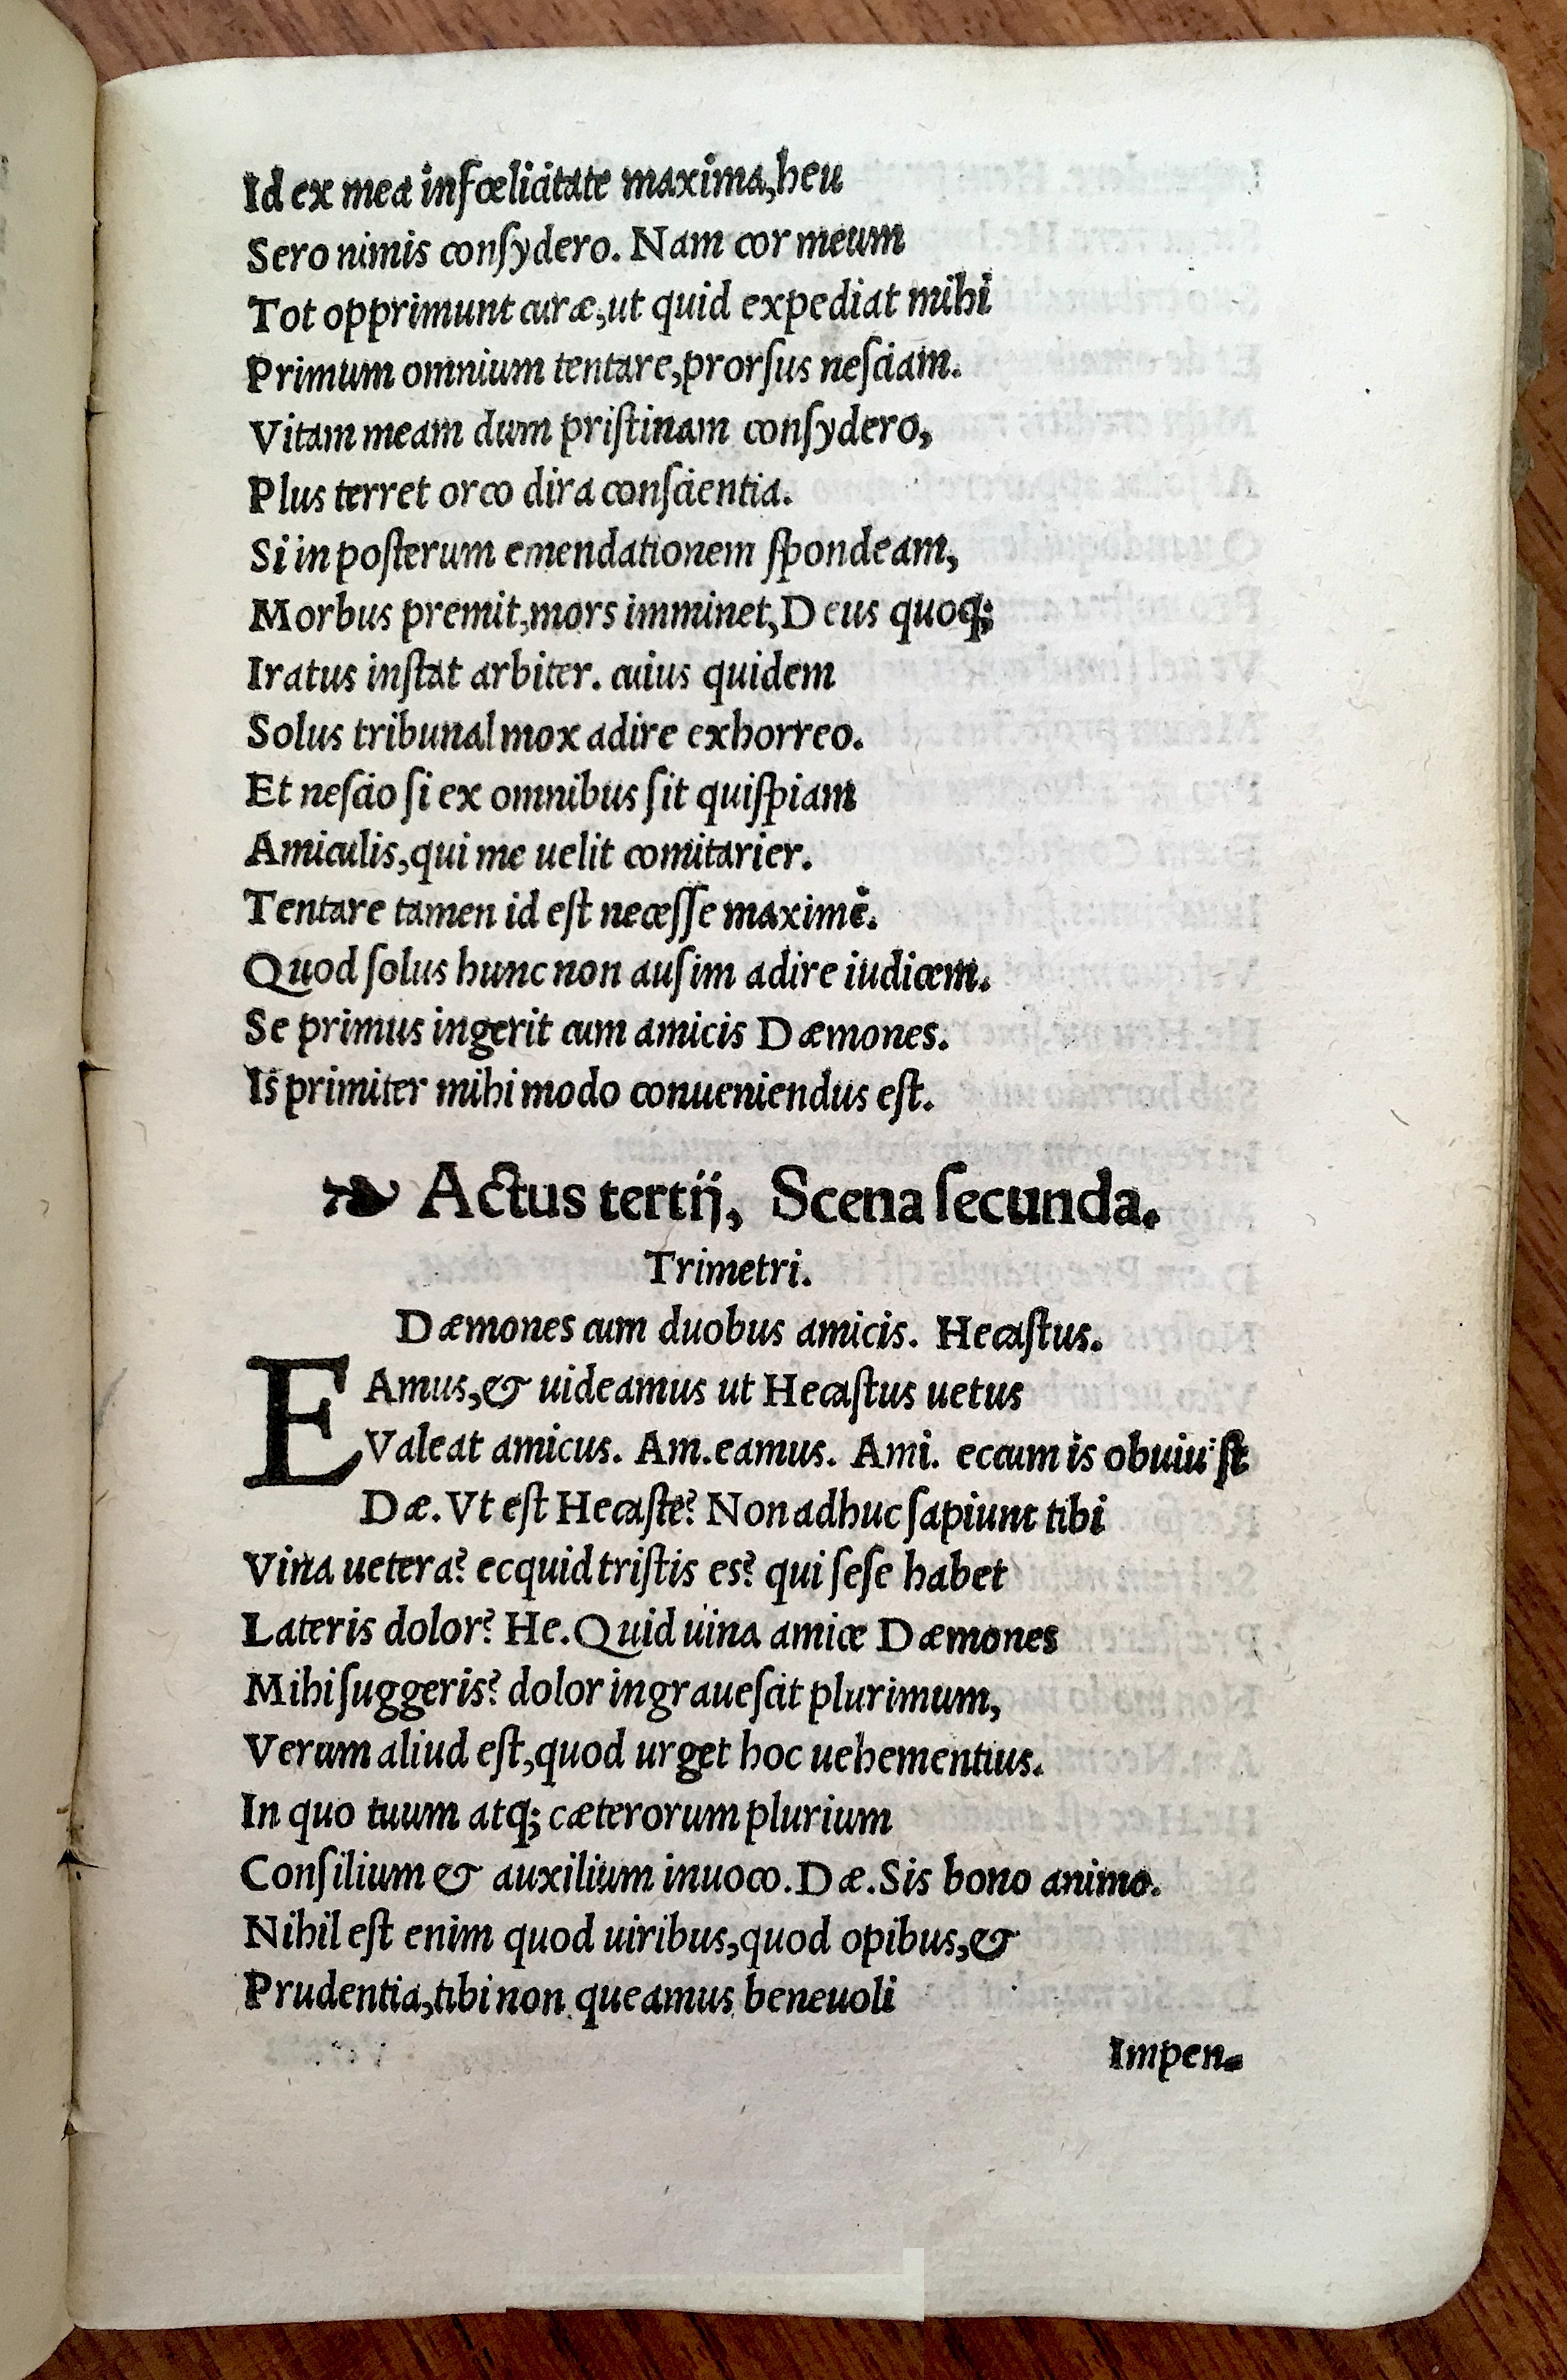 Id ex mea infœlicitate maxima, heu
Sero nimis conſydero. Nam cor meum
Tot opprimunt curæ, ut quid expediat mihi
Primum omnium tentare, prorſus neſciam.
Vitam meam dum priſtinam conſydero,
Plus terret orco dira conſcientia.
Si in poſterum emendationem ſpondeam,
Morbus premit, mors imminet, Deus quoq;
Iratus inſtat arbiter. cuius quidem
Solus tribunal mox adire exhorreo.
Et neſcio ſi ex omnibus ſit quiſpiam
Amiculis, qui me uelit comitarier.
Tentare tamen id eſt neceſſe maximè.
Quod ſolus hunc non auſim adire iudicem.
Se primus ingerit cum amicis Dæmones.
Is primiter mihi modo conueniendus eſt.
❧ Actus tertij, Scena ſecunda.
Trimetri.
Dæmones cum duobus amicis. Hecaſtus.
EAmus, & uideamus ut Hecaſtus uetus
Valeat amicus. Am. eamus. Ami. eccum is obuiu' ſt
Dæ. Vt eſt Hecaſte? Non adhuc ſapiunt tibi
Vina uetera? ecquid triſtis es? qui ſeſe habet
Lateris dolor? He. Quid uina amice Dæmones
Mihi ſuggeris? dolor ingraueſcit plurimum,
Verum aliud eſt, quod urget hoc uehementius.
In quo tuum atq; cæterorum plurium
Conſilium & auxilium inuoco. Dæ. Sis bono animo.
Nihil eſt enim quod uiribus, quod opibus, &
Prudentia, tibi non queamus beneuoli
Impen-